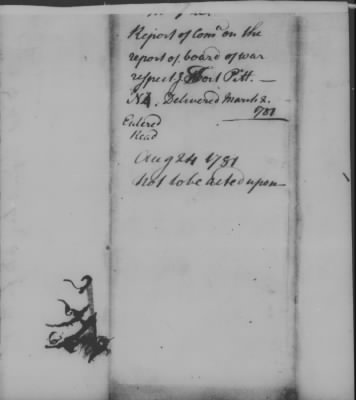 Report of Comᵉ on the
report of board of war
respectg Fort Pitt. —
Delivered March 2.
1781
Entered
Read
Aug 24 1781
Not to be acted upon—